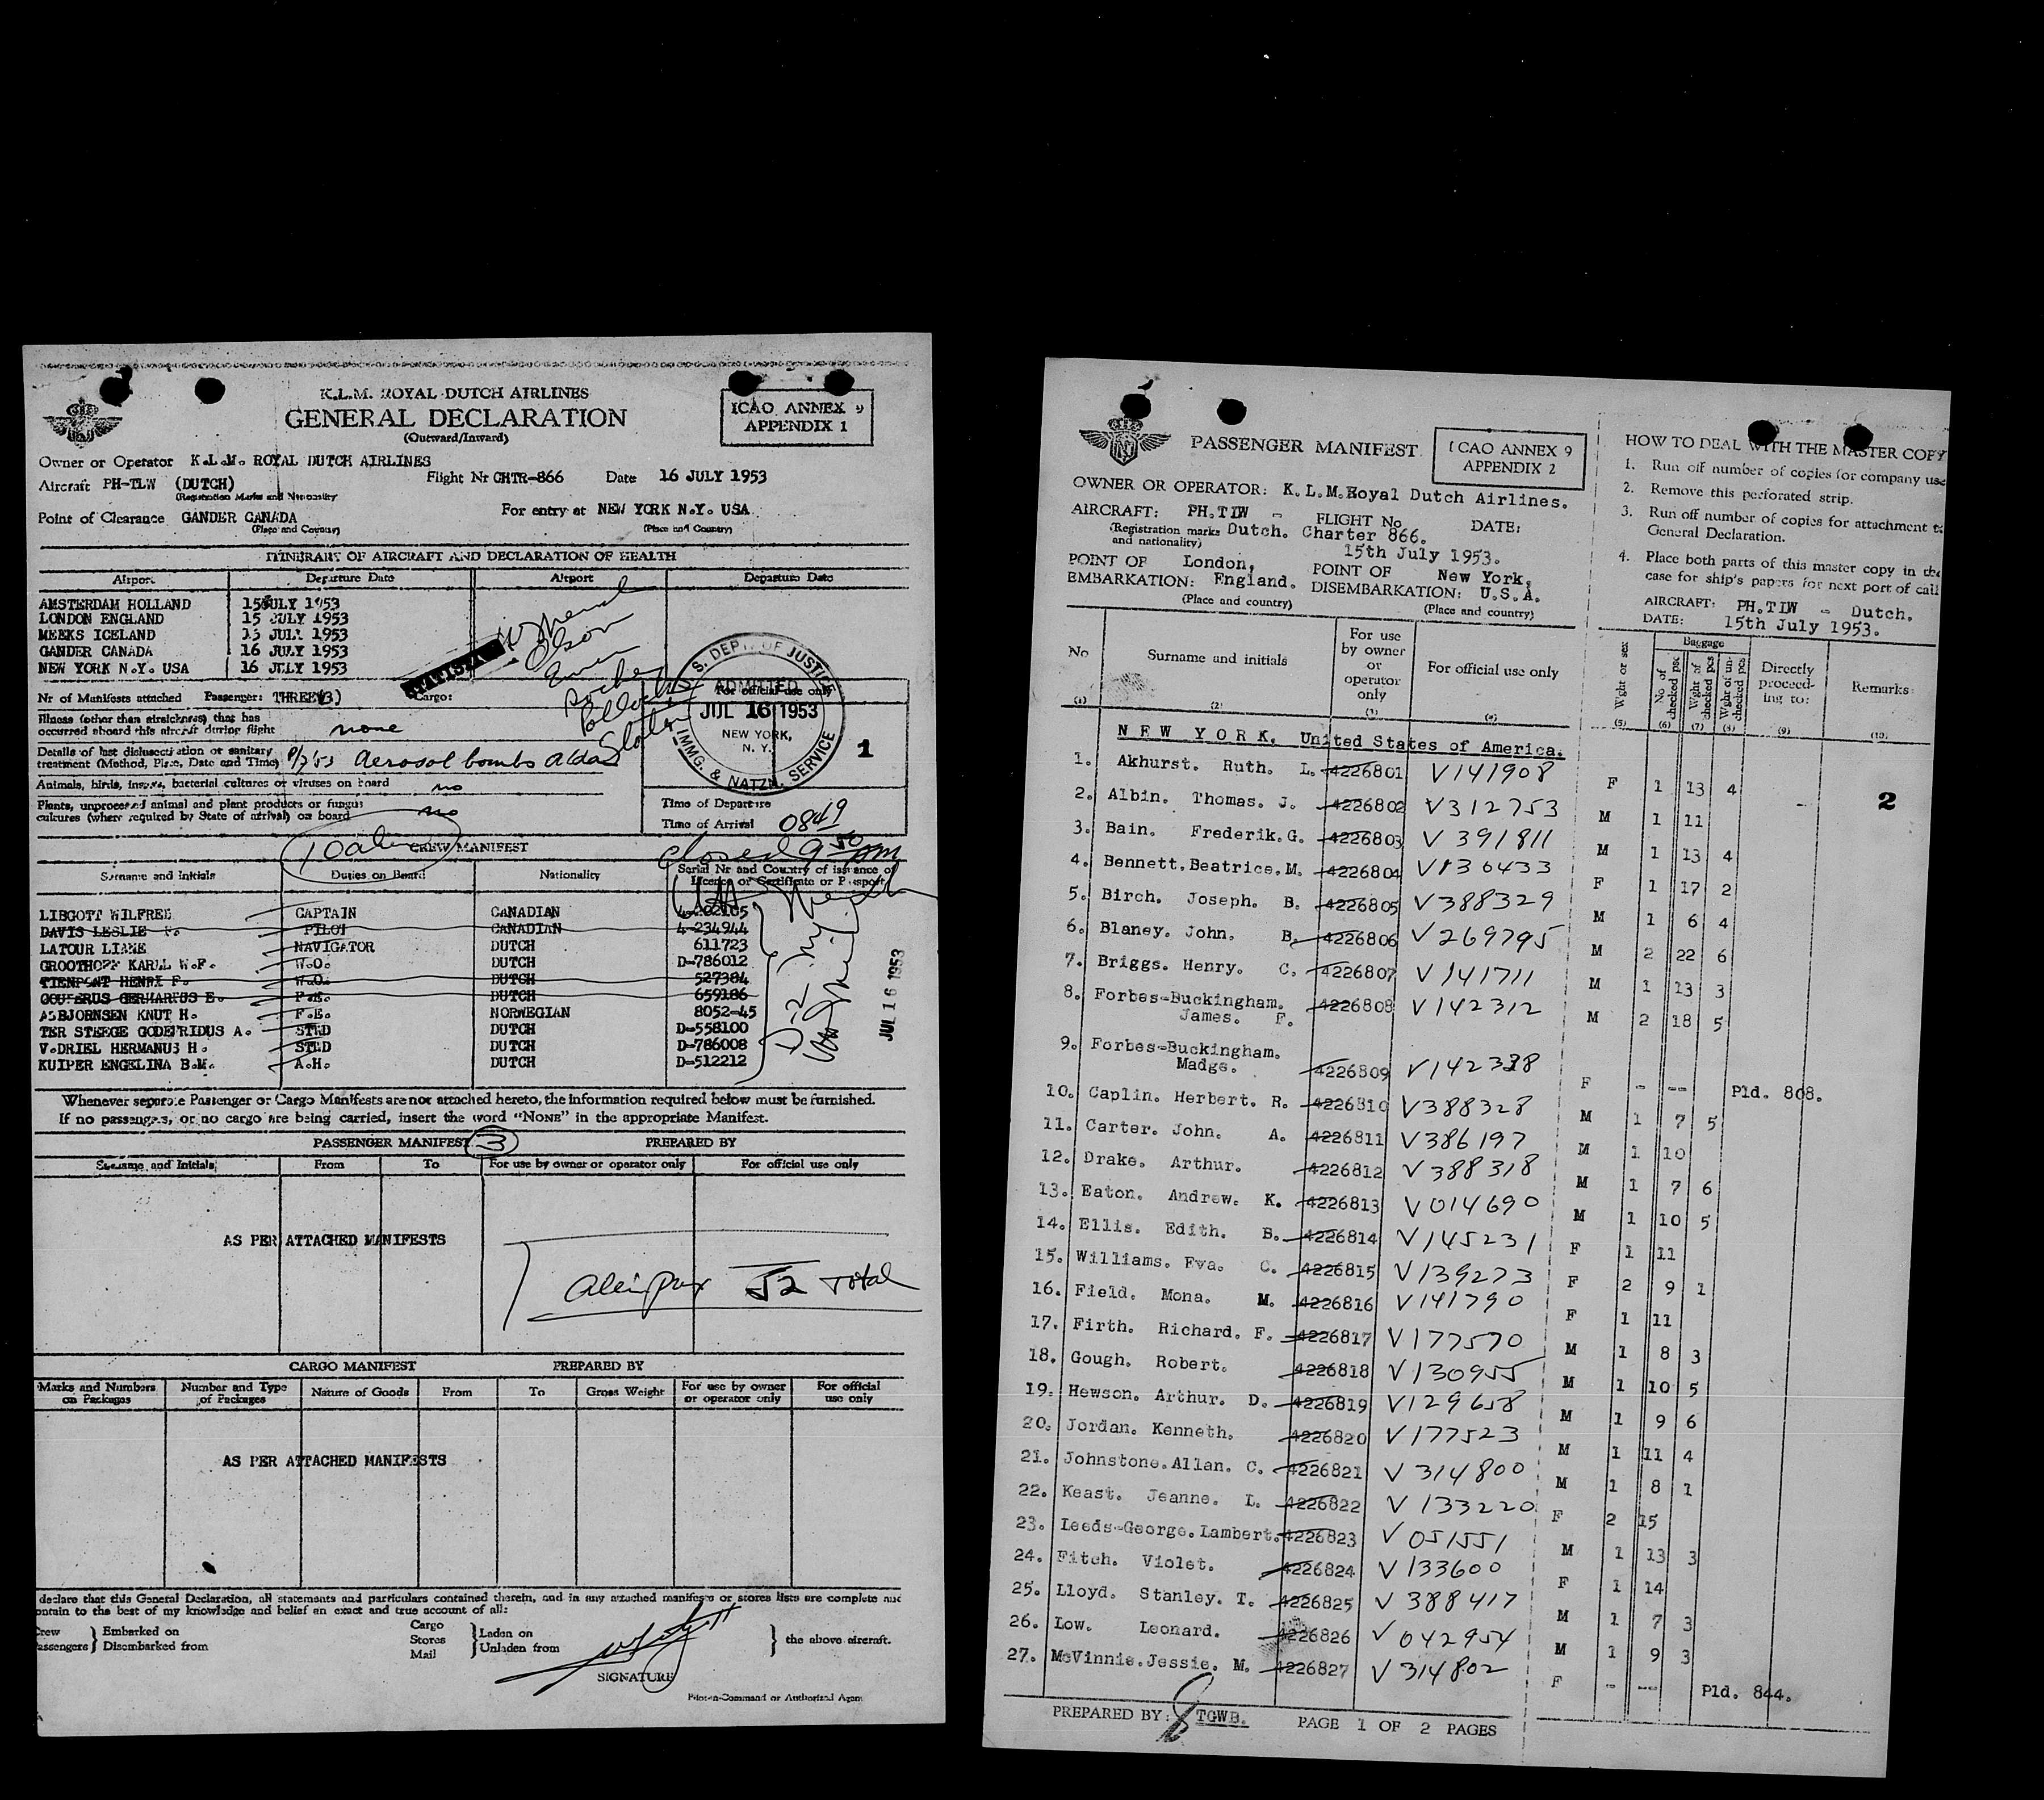 K.L.M. ROYAL DUTCH AIRLINES
GENERAL DECLARATION
(Outward/Inward)
ICAO ANNEX 9
APPENDIX 1
Owner or Operator K.L.M. ROYAL DUTCH AIRLINES
Aircraft PH-TLW (DUTCH) Flight Nr CHTR-866 Date 16 JULY 1953
(Registration Marks and Nationality)
Point of Clearance GANDER CANADA For entry at NEW YORK N.Y. USA
(Place and Country) (Place and Country)
ITINERARY OF AIRCRAFT AND DECLARATION OF HEALTH
Airport Departure Date Airport Departure Date
AMSTERDAM HOLLAND 15 JULY 1953
LONDON ENGLAND 15 JULY 1953
MEEKS ICELAND 15 JULY 1953
GANDER CANADA 16 JULY 1953
NEW YORK N.Y. USA 16 JULY 1953
Olson
Nr of Manifests attached Passenger: THREE(3) Cargo:
For official use only
U.S. DEPT. OF JUSTICE
ADMITTED
JUL 16 1953
NEW YORK,
N. Y.
IMMG. & NATZN. SERVICE
1
Illness (other than airsickness) that has
occurred aboard this aircraft during flight none
Details of last disinsectisation or sanitary
treatment (Method, Place, Date and Time) Aerosol bombs
Animals, birds, insects, bacterial cultures or viruses on board no
Plants, unprocessed animal and plant products or fungus
cultures (where required by State of arrival) on board no
Time of Departure
Time of Arrival 0849
closed 9 50 am
CREW MANIFEST
Surname and Initials Duties on Board Nationality Serial Nr and Country of issuance of
Licence or Certificate or Passport
LISGOTT WILFRED CAPTAIN CANADIAN 4-202165
DAVIS LESLIE PILOT CANADIAN 4-234944
LATOUR LIANE NAVIGATOR DUTCH 611723
GROOTHOFF KAREL W.F. W.O. DUTCH D-786012
TIENPONT HENRI F. W.O. DUTCH 527384
GOUTERUS GERHARDUS E. F.E. DUTCH 659186
ASBJORNSEN KNUT H. F.E. NORWEGIAN 8052-45
TER STEEGE GODEFRIDUS A. STWD DUTCH D-558100
V.DRIEL HERMANUS H. STWD DUTCH D-786008
KUIPER ENGELINA B.M. A.H. DUTCH D-512212
JUL 16 1953
Whenever separate Passenger or Cargo Manifests are not attached hereto, the information required below must be furnished.
If no passengers, or no cargo are being carried, insert the word "NONE" in the appropriate Manifest.
PASSENGER MANIFEST 3 PREPARED BY
Surname and Initials From To For use by owner or operator only For official use only
AS PER ATTACHED MANIFESTS
52 Total
CARGO MANIFEST PREPARED BY
Marks and Numbers on Packages Number and Type of Packages Nature of Goods From To Gross Weight For use by owner or operator only For official use only
AS PER ATTACHED MANIFESTS
declare that this General Declaration, all statements and particulars contained therein, and in any attached manifests or stores lists are complete and
ontain to the best of my knowledge and belief an exact and true account of all:
Crew Embarked on Cargo Laden on
Passengers Disembarked from Stores Unladen from the above aircraft.
Mail
SIGNATURE
Pilot-in-Command or Authorized Agent
PASSENGER MANIFEST
ICAO ANNEX 9
APPENDIX 2
OWNER OR OPERATOR: K.L.M.Royal Dutch Airlines.
AIRCRAFT: PH.TLW - FLIGHT No DATE:
(Registration marks and nationality) Dutch. Charter 866.
15th July 1953.
POINT OF EMBARKATION: London, England. POINT OF DISEMBARKATION: New York, U.S.A.
(Place and country) (Place and country)
HOW TO DEAL WITH THE MASTER COPY
1. Run off number of copies for company use
2. Remove this perforated strip.
3. Run off number of copies for attachment to
General Declaration.
4. Place both parts of this master copy in the
case for ship's papers for next port of call
AIRCRAFT: PH.TLW - Dutch.
DATE: 15th July 1953.
No Surname and initials For use by owner or operator only For official use only Wght or sex Baggage No of checked pcs Wght of checked pcs Wght of unchecked pcs Directly proceeding to: Remarks
(1) (2) (3) (4) (5) (6) (7) (8) (9) (10)
NEW YORK. United States of America.
1. Akhurst. Ruth. L. 4226801 V141908 F 1 13 4
2
2. Albin. Thomas. J. 4226802 V312753 M 1 11
3. Bain. Frederik.G. 4226803 V 391811 M 1 13 4
4. Bennett.Beatrice.M. 4226804 V136433 F 1 17 2
5. Birch. Joseph. B. 4226805 V388329 M 1 6 4
6. Blaney. John. B. 4226806 V269795 M 2 22 6
7. Briggs. Henry. C. 4226807 V141711 M 1 13 3
8. Forbes-Buckingham.
James. F. 4226808 V142312 M 2 18 5
9. Forbes-Buckingham.
Madge. 4226809 V142328 F - -- Pld. 808.
10. Caplin. Herbert. R. 4226810 V388328 M 1 7 5
11. Carter. John. A. 4226811 V386197 M 1 10
12. Drake. Arthur. 4226812 V388318 M 1 7 6
13. Eaton. Andrew. K. 4226813 V014690 M 1 10 5
14. Ellis. Edith. B. 4226814 V145231 F 1 11
15. Williams. Eva. C. 4226815 V139273 F 2 9 1
16. Field. Mona. M. 4226816 V141790 F 1 11
17. Firth. Richard. F. 4226817 V177570 M 1 8 3
18. Gough. Robert. 4226818 V130955 M 1 10 5
19. Hewson. Arthur. D. 4226819 V129658 M 1 9 6
20. Jordan. Kenneth. 4226820 V177523 M 1 11 4
21. Johnstone.Allan. C. 4226821 V314800 M 1 8 1
22. Keast. Jeanne. L. 4226822 V133220 F 2 15
23. Leeds-George.Lambert. 4226823 V051551 M 1 13 3
24. Fitch. Violet. 4226824 V133600 F 1 14
25. Lloyd. Stanley. T. 4226825 V 388417 M 1 7 3
26. Low. Leonard. 4226826 V042954 M 1 9 3
27. McVinnie.Jessie. M. 4226827 V314802 F - -- Pld. 844.
PREPARED BY: TGWB. PAGE 1 OF 2 PAGES